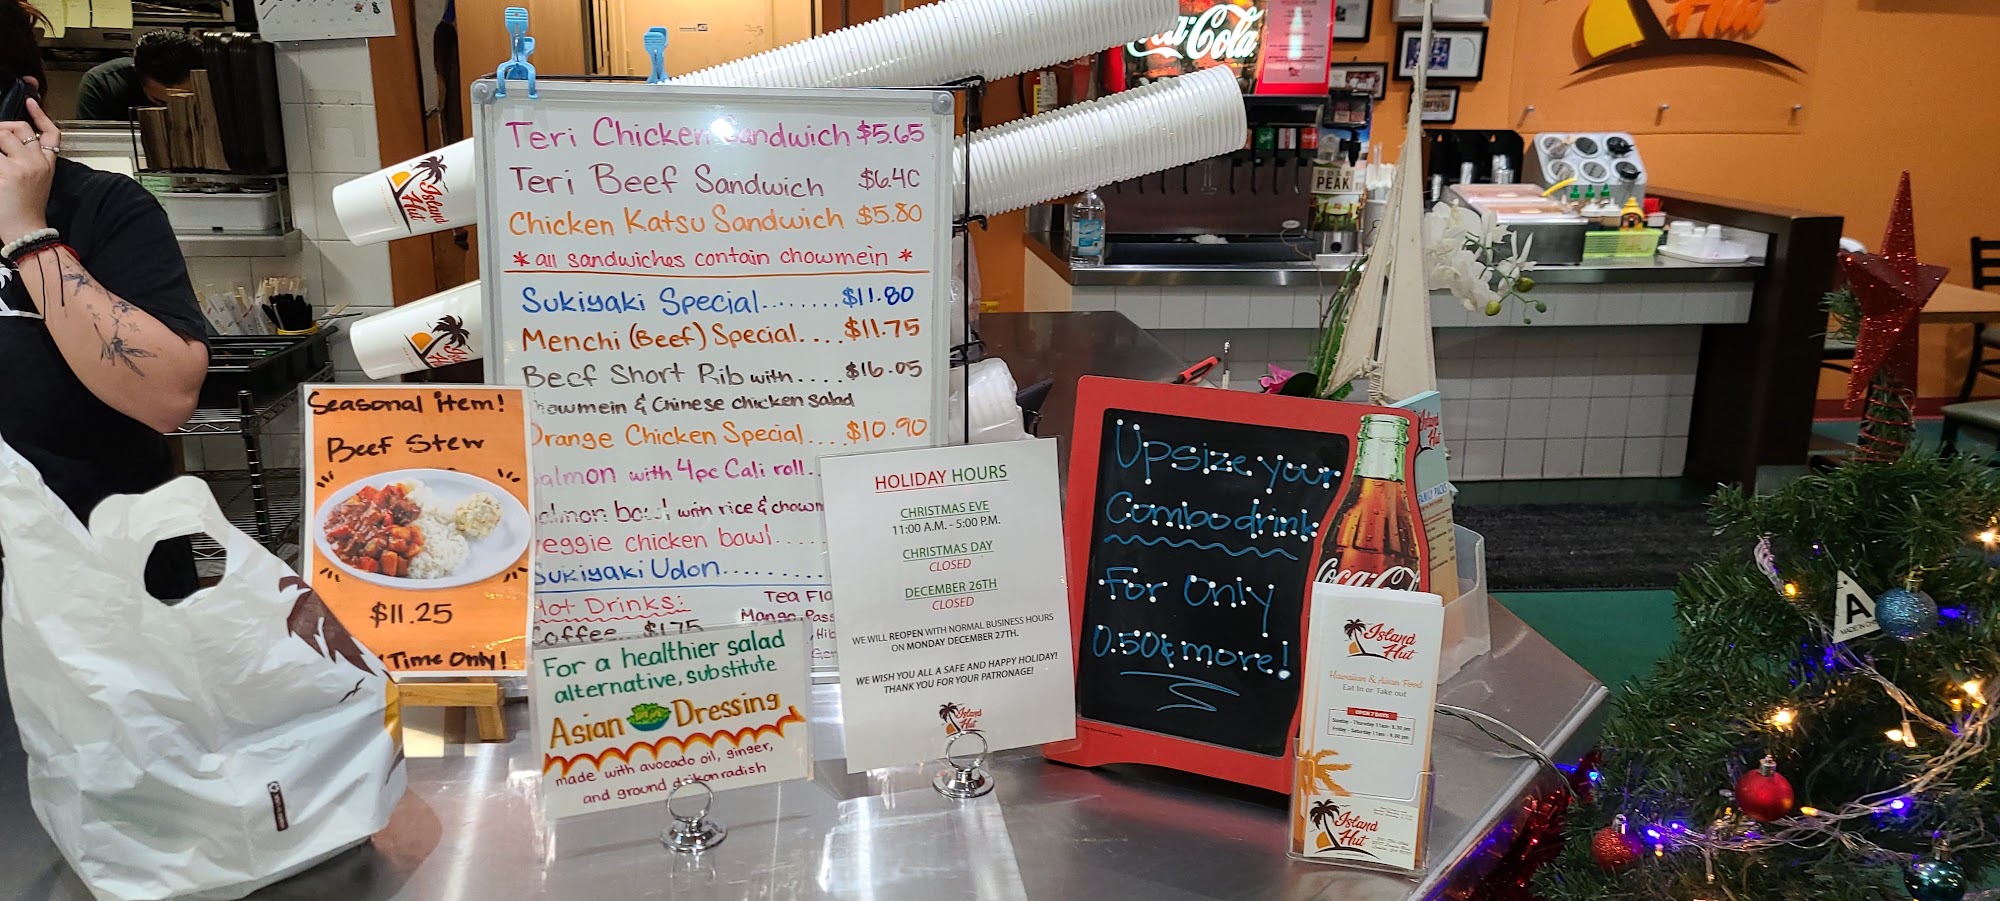 Teri Chicken Sandwich $5.65
Teri Beef Sandwich $6.40
Chicken Katsu Sandwich $5.80
* all sandwiches contain chowmein *
Sukiyaki Special........$11.80
Menchi (Beef) Special....$11.75
Beef Short Rib with....$16.05
chowmein & Chinese chicken salad
Orange Chicken Special....$10.90
Salmon with 4pc Cali roll..
Salmon bowl with rice & chow
Veggie chicken bowl.....
Sukiyaki Udon.........
Hot Drinks:
Coffee...$1.75
Tea Fla
Mango Pass
Hib
Island
Hut
Island
Hut
Seasonal item!
Beef Stew
$11.25
Time Only!
For a healthier salad
alternative, substitute
Asian Dressing
made with avocado oil, ginger,
and ground daikon radish
HOLIDAY HOURS
CHRISTMAS EVE
11:00 A.M. - 5:00 P.M.
CHRISTMAS DAY
CLOSED
DECEMBER 26TH
CLOSED
WE WILL REOPEN WITH NORMAL BUSINESS HOURS
ON MONDAY DECEMBER 27TH.
WE WISH YOU ALL A SAFE AND HAPPY HOLIDAY!
THANK YOU FOR YOUR PATRONAGE!
Island
Hut
Upsize your
Combo drink
For Only
0.50¢ more!
Coca-Co
Island
Hut
Hawaiian & Asian Food
Eat In or Take out
OPEN 7 DAYS
Sunday - Thursday 11am - 8:30 pm
Friday - Saturday 11am - 9:00 pm
Island
Hut
FAMILY PACKS
Coca-Cola
GOLD
PEAK
Hut
A